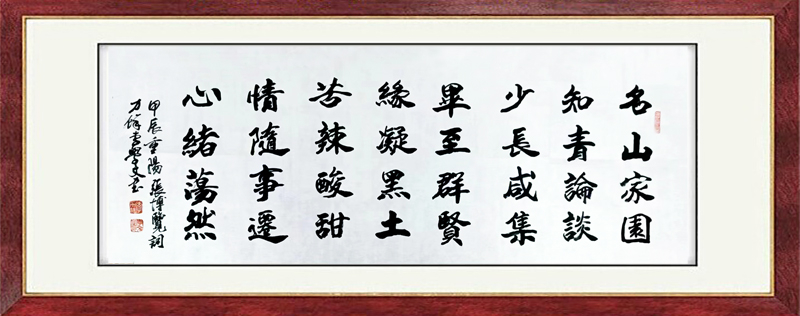 名山家園
知青論談
少長咸集
畢至群賢
緣凝黑土
苦辣酸甜
情隨事遷
心緒蕩然
甲辰重陽張博覽詞